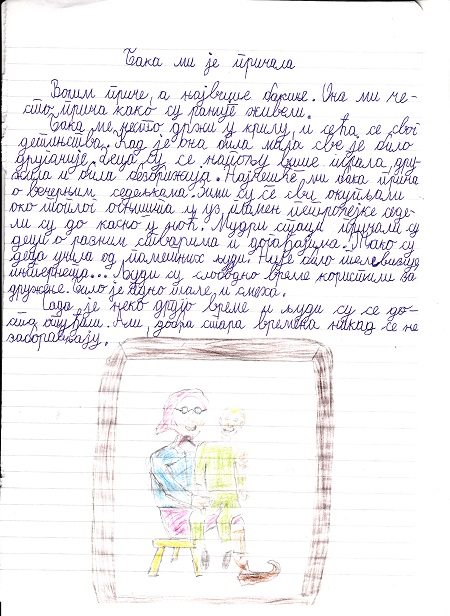 Бака ми је причала
Волим приче, а највише бакине. Она ми че-
сто прича како су раније живели.
Бака ме често држи у крилу и сећа се свог
детињства. Кад је она била мала све је било
другачије. Деца су се напољу више играла, дру-
жила и била безбрижнија. Најчешће ми бака прича
о вечерњим седељкама. Зими су се сви окупљали
око топлог огњишта и уз пламен петролејке седе-
ли су до касно у ноћ. Мудри стари причали су
деци о разним стварима и догађајима. Тако су
деца учила од паметних људи. Није било телевизије,
интернета... Људи су слободно време користили за
дружење. Било је пуно шале и смеха.
Сада је неко друго време и људи су се до-
ста отуђили. Али, добра стара времена никад се не
заборављају.